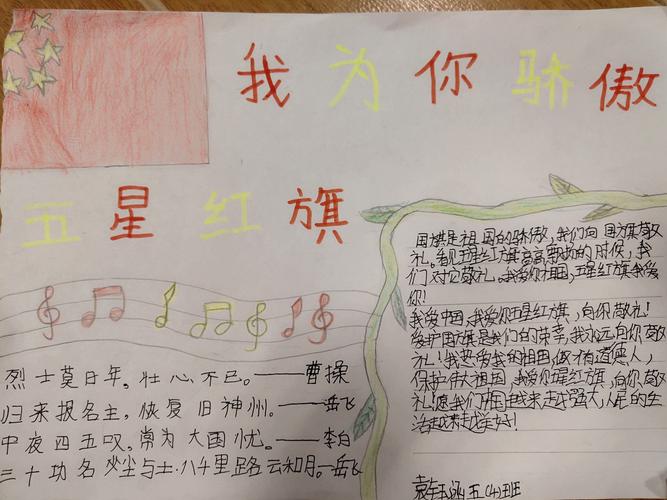 我为你骄傲
五星红旗
烈士莫日年，壮心不已。——曹操
归来报名主，恢复旧神州。——岳飞
中夜四五叹，常为大国忧。——李白
三十功名尘与土·八千里路云和月。—岳飞
国旗是祖国的骄傲，我们向国旗敬
礼。看见五星红旗高高飘扬的时候，我
们对它敬礼。我爱你祖国，五星红旗我爱
你！
我爱中国，我爱你五星红旗，向你敬礼！
爱护国旗是我们的荣幸，我永远向你敬
礼！我热爱我的祖国，做有道德人，
保护伟大祖国，我爱你五星红旗，向你敬
礼！愿我们祖国越来越强大，人民的生
活越来越美好！
袁钰涵五(4)班